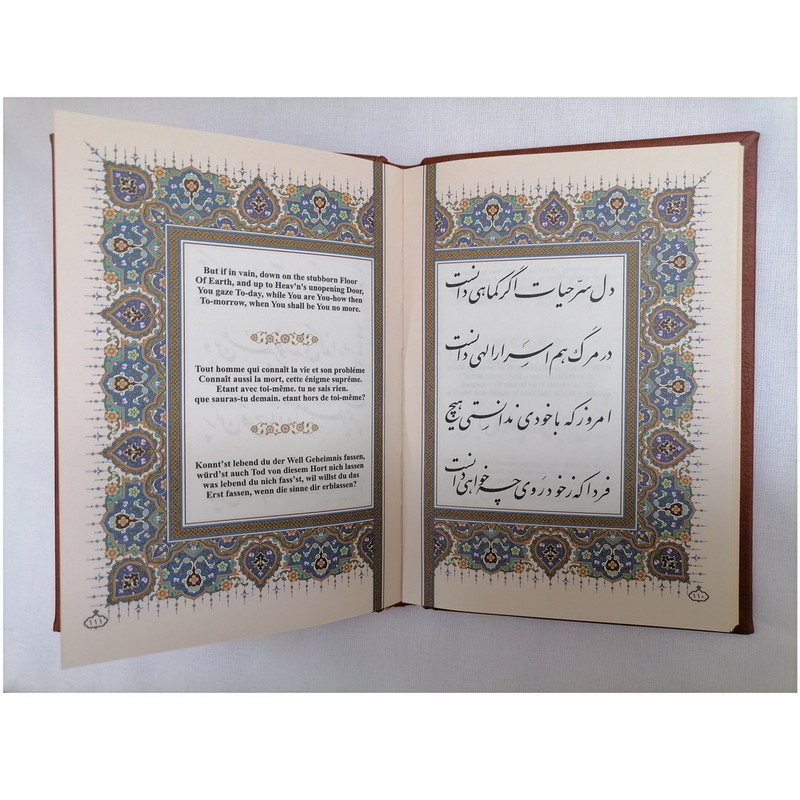 دل سرّ حیات اگر کماهی دانست
در مرگ هم اسرار الهی دانست
امروز که با خودی ندانستی هیچ
فردا که ز خود روی چه خواهی دانست
۱۱۰
But if in vain, down on the stubborn Floor
Of Earth, and up to Heav'n's unopening Door,
You gaze To-day, while You are You-how then
To-morrow, when You shall be You no more.
Tout homme qui connaît la vie et son probléme
Connaît aussi la mort, cette énigme supréme.
Etant avec toi-même. tu ne sais rien.
que sauras-tu demain. etant hors de toi-même?
Konnt'st lebend du der Well Geheimnis fassen,
würd'st auch Tod von diesem Hort nich lassen
was lebend du nich fass'st, wil willst du das
Erst fassen, wenn die sinne dir erblassen?
۱۱۱